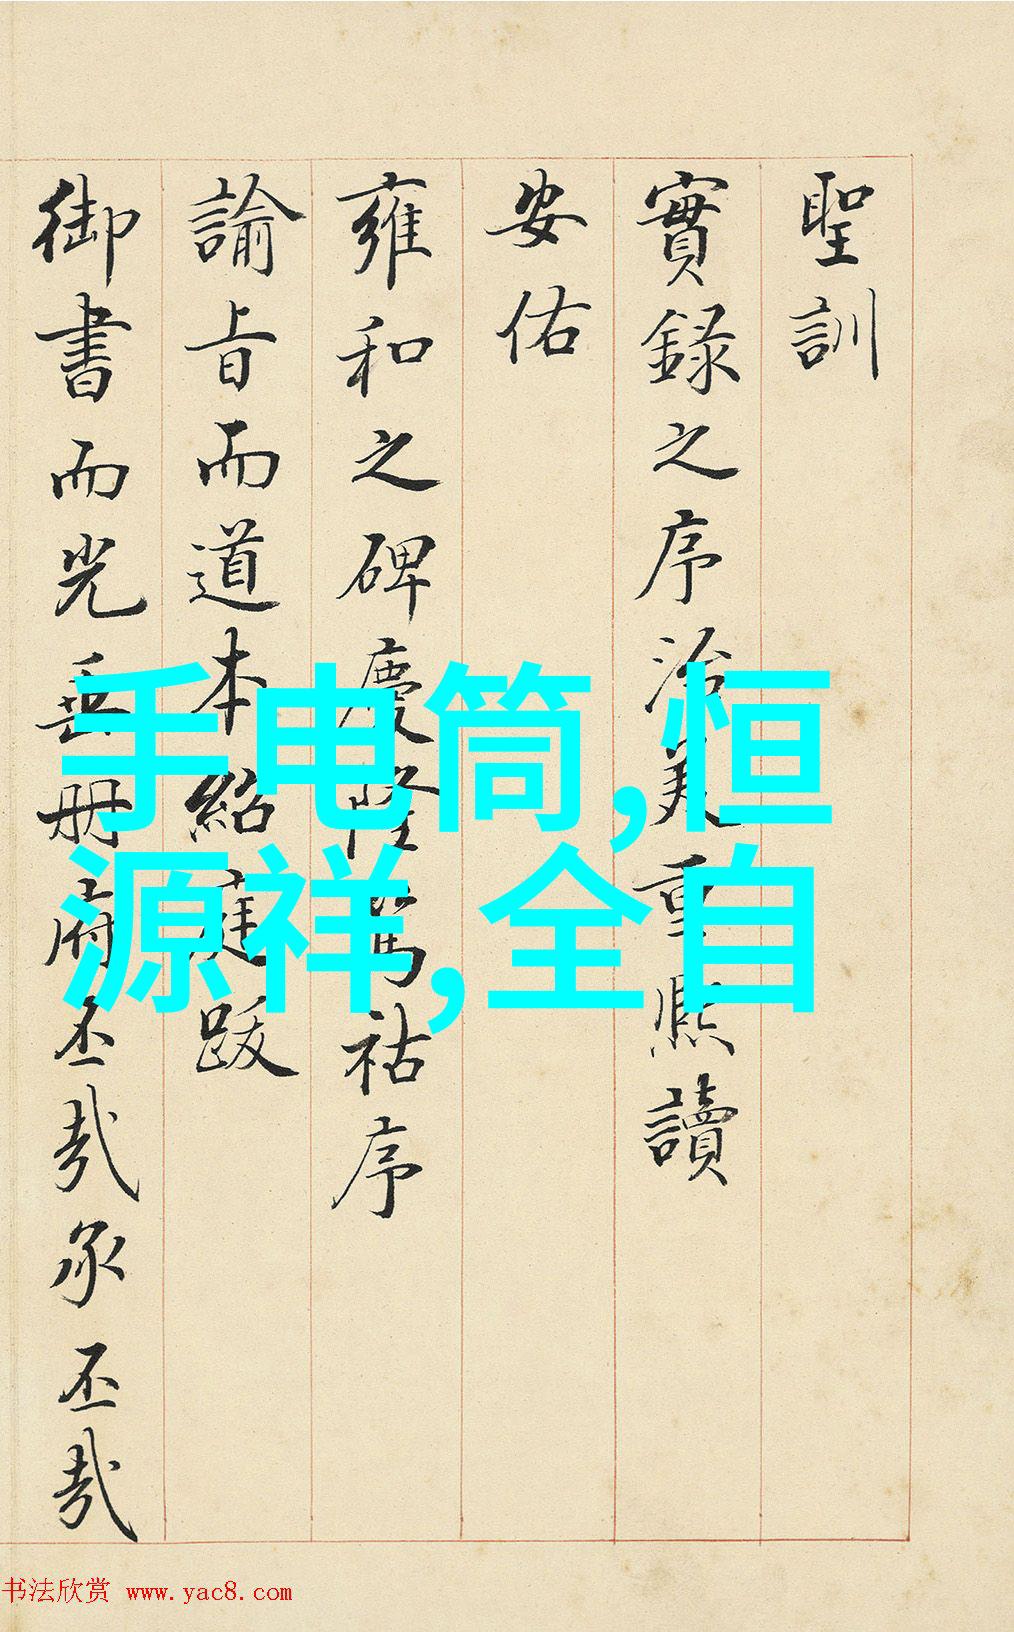 聖訓
實錄之序治美重熙讀
安佑
雍和之碑慶隆篤祜序
諭旨而道本紹庭跋
御書而光垂冊府丕哉承丕哉
手电筒,恒
源祥,全自
书法欣赏 www.yac8.com